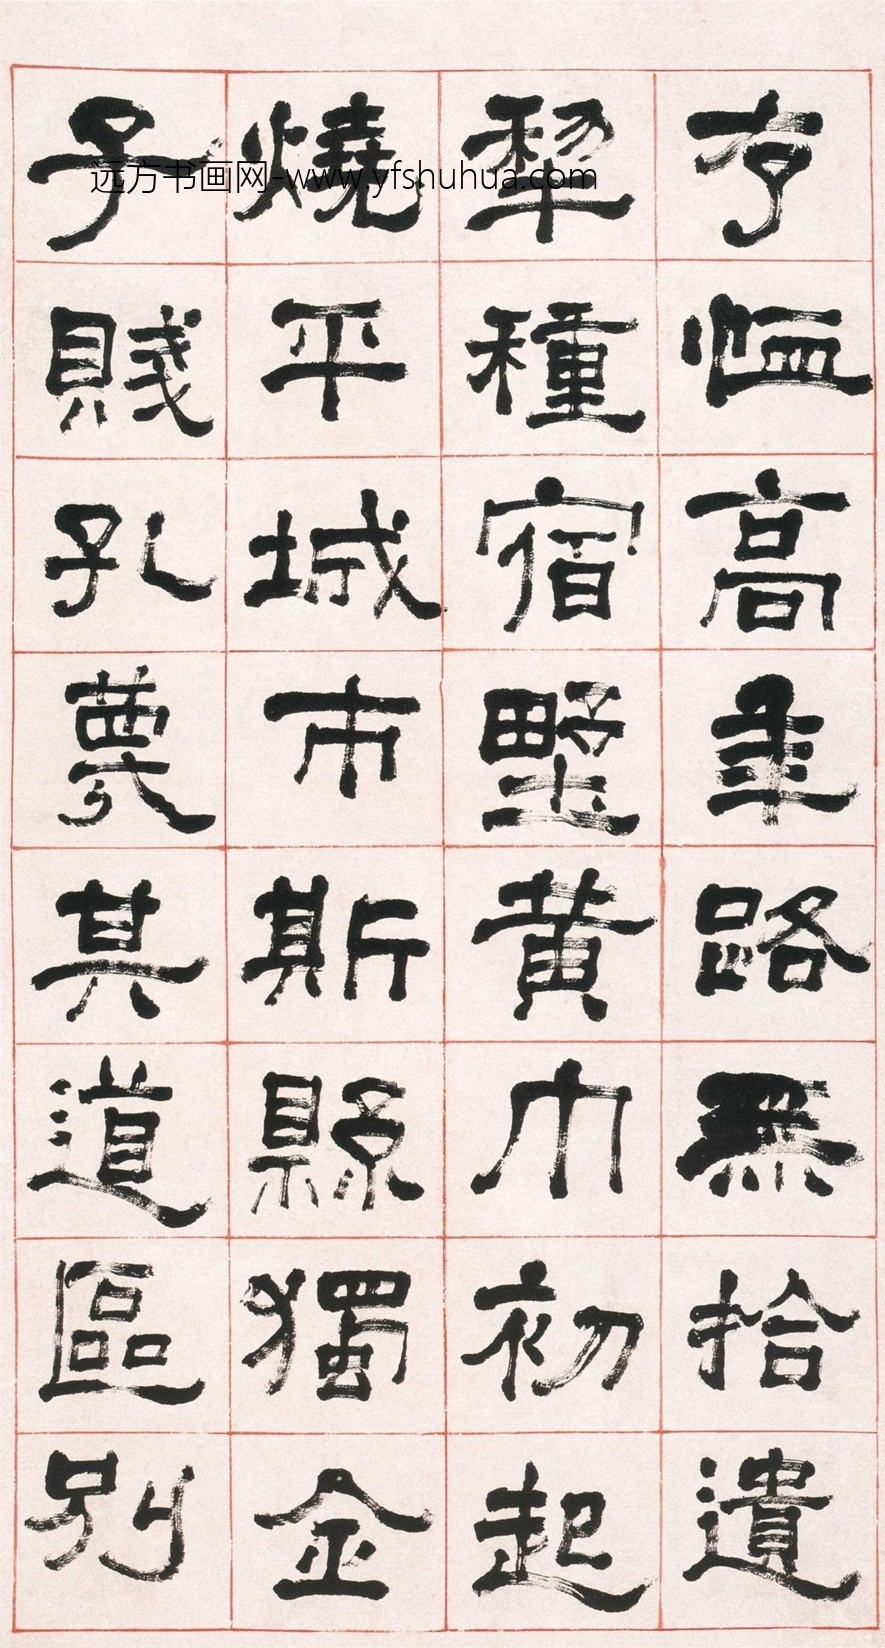 存恤高年路無拾遺
犁種宿野黃巾初起
燒平城市斯縣獨全
子賤孔蔑其道區別
远方书画网-www.yfshuhua.com